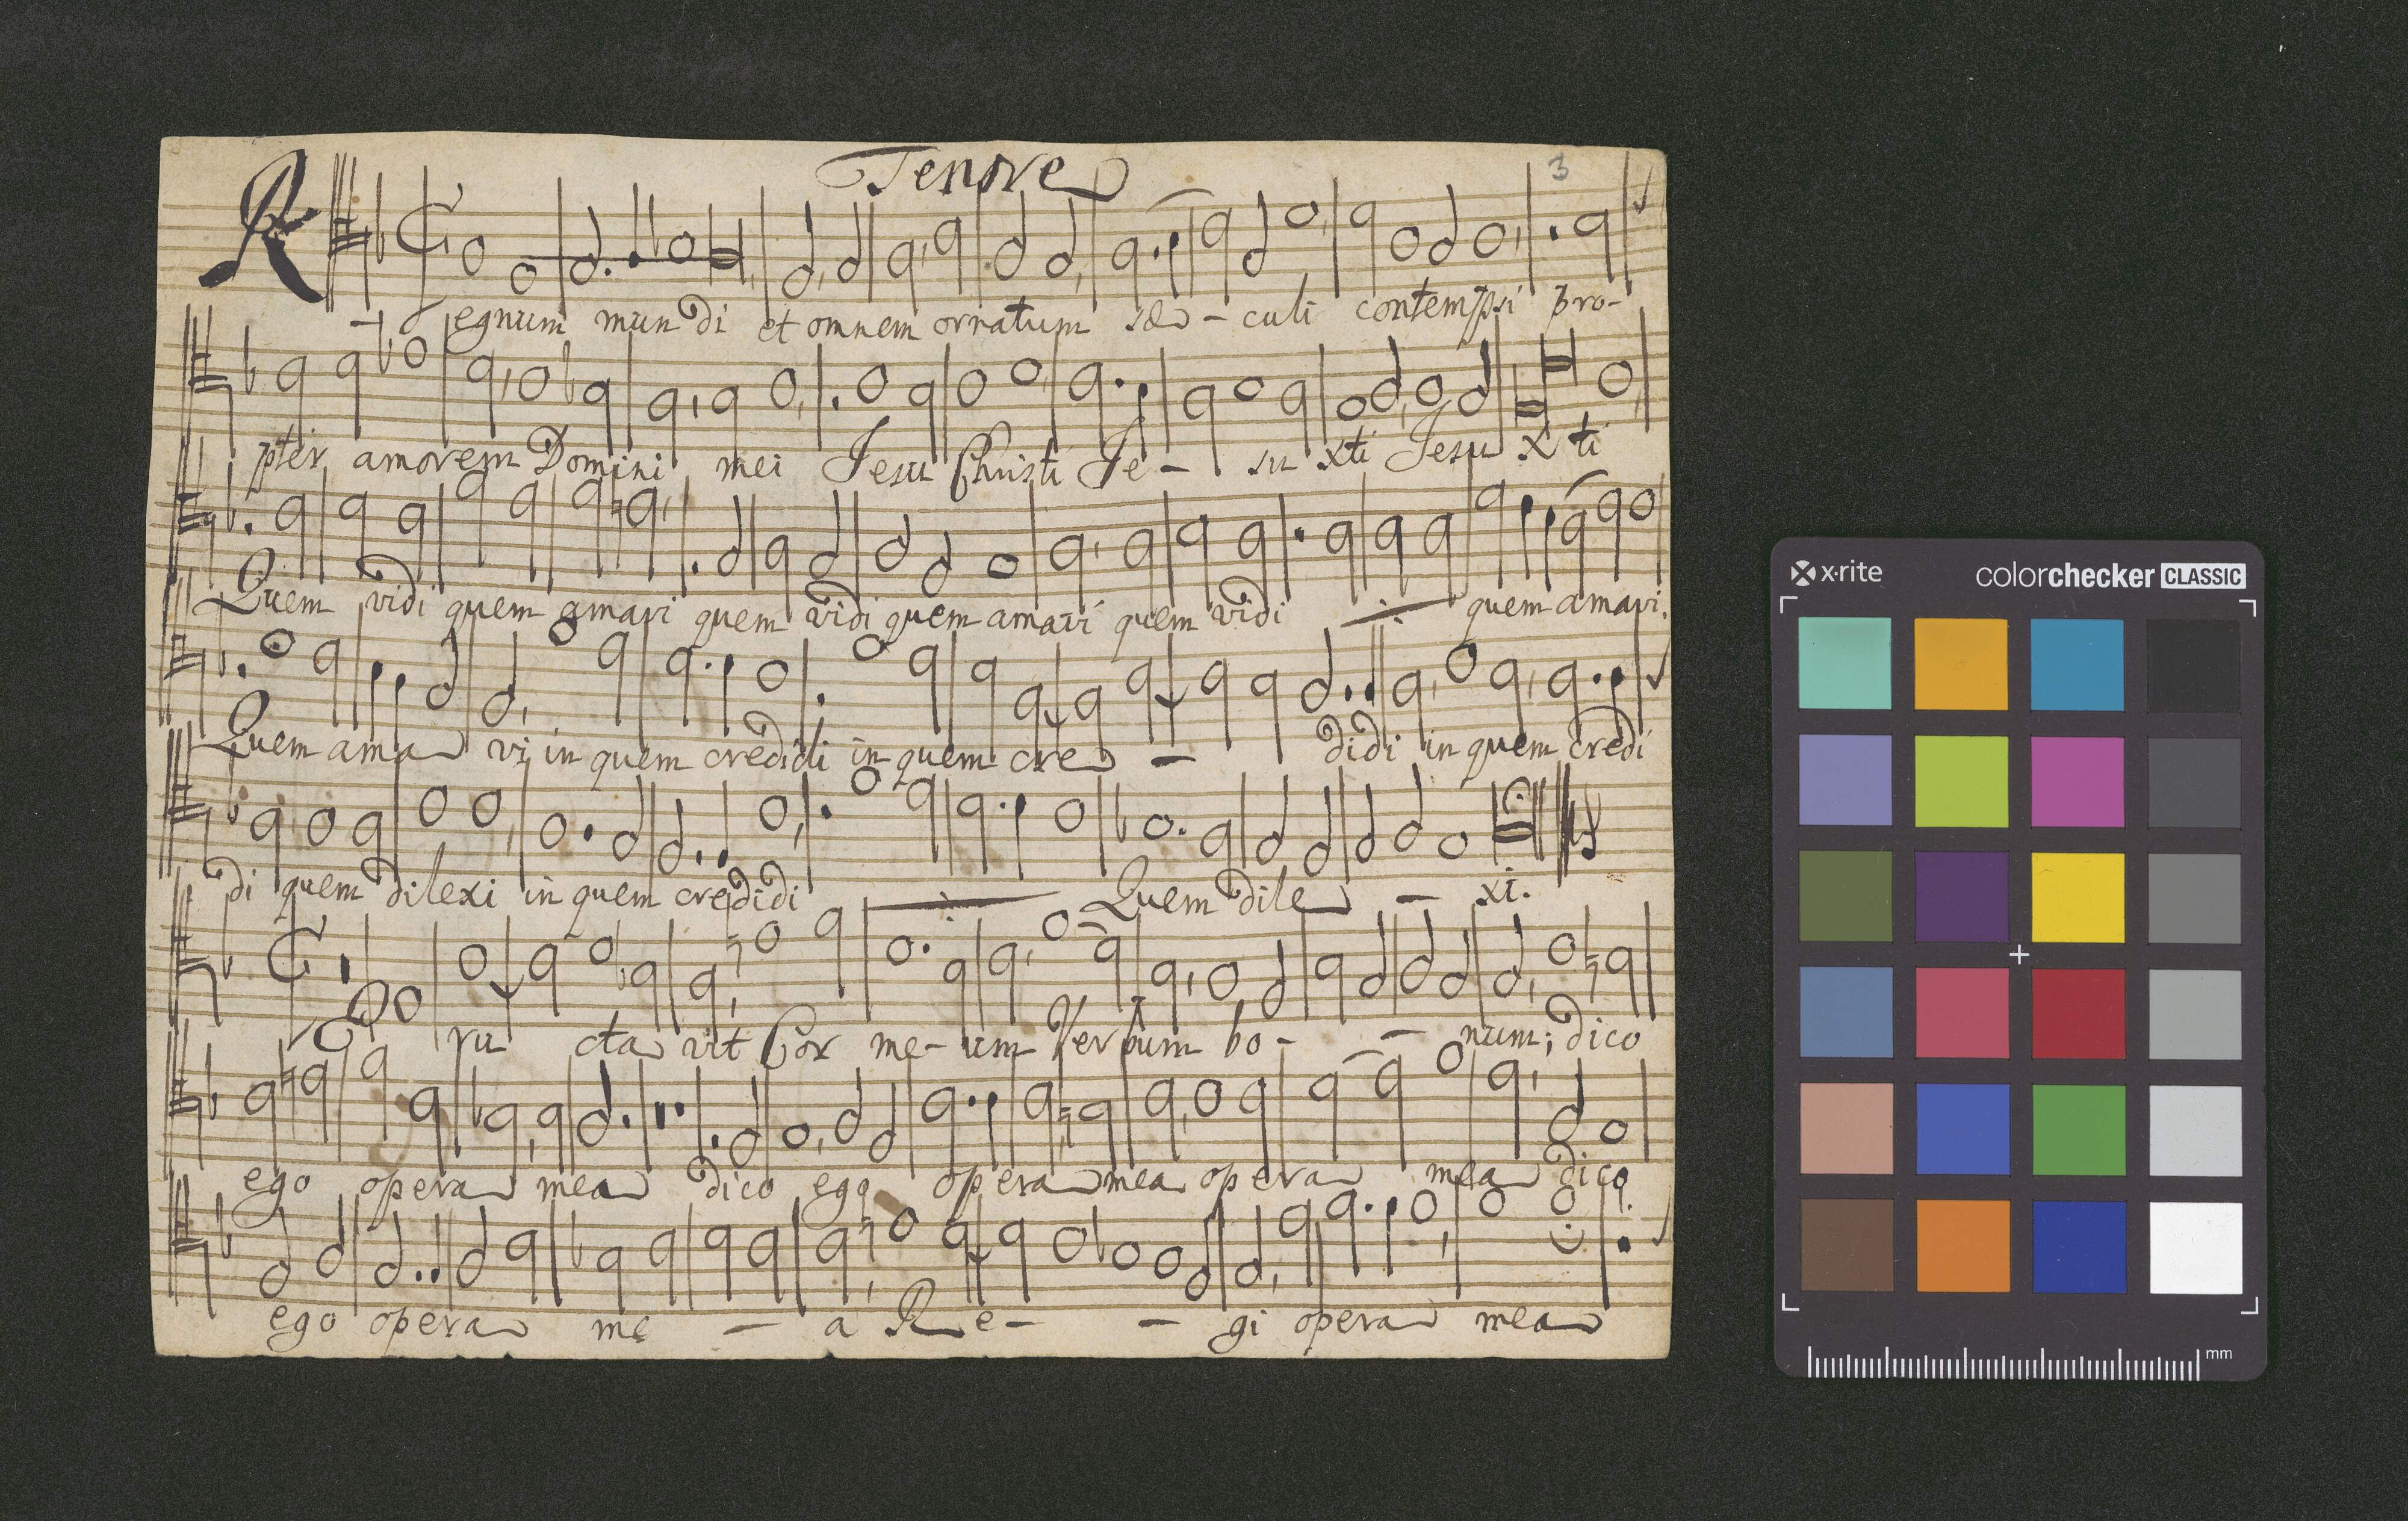 Tenore
3
Regnum mundi et omnem ornatum sæ - culi contempsi pro-
pter amorem Domini mei Jesu Christi Je - su xti Jesu Xti
Quem vidi quem amavi quem vidi quem amavi quem vidi ·/· quem amavi.
Quem ama vi in quem credidi in quem cre - didi in quem credi
di quem dilexi in quem credidi ·/· Quem dile - xi.
Eru cta vit Cor me- um Verbum bo- - num; dico
ego opera mea dico ego opera mea opera mea dico
ego opera me - a Re- - gi opera mea
x·rite colorchecker CLASSIC
mm